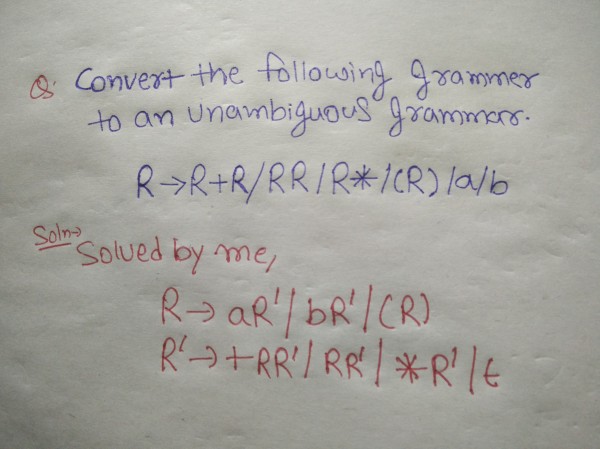 Q. Convert the following grammer
to an unambiguous grammar.
R→R+R/RR/R*/(R)/a/b
Soln→
Solved by me,
R→aR'/bR'/(R)
R'→+RR'/RR'/*R'/ϵ